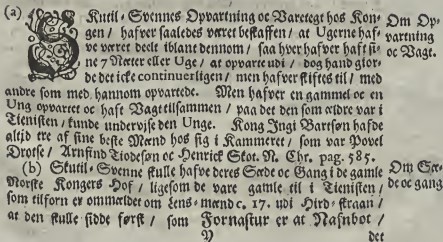 (a) Skutil-Svennes Opvartning oc Varetegt hos Kon-
gen / hafver saaledes været beskaffen / at Ugerne haf-
ve værret deelt iblant dennom / saa hver hafver haft si-
ne 7 Nætter eller Uge / at opvarte udi / dog hand gior-
de det icke continuerligen / men hafver skiftes til / med
andre som med hannom opvartede. Men hafver en gammel oc en
Ung opvartet oc haft Vagt tillsammen / paa det den som ældre var i
Tienisten / kunde undervise den Unge. Kong Jngi Bartson hafde
altid tre af sine beste Mænd hos sig i Kammeret / som var Povel
Drotse / Arnfind Tiodeson oc Henrick Skot. N. Chr. pag. 585.
(b) Skutil-Svenne skulle hafve deres Sæde oc Gang i de gamle
Norske Kongers Hof / ligesom de vare gamle til i Tienisten /
som tilforn er ommældet om Lens-mænd c. 17. udi Hird-skraan /
at den skulle sidde først / som Fornastur er at Nafnbot /
Y
det
Om Op-
vartning
oc Vagt.
Om Sæ-
de oc gang